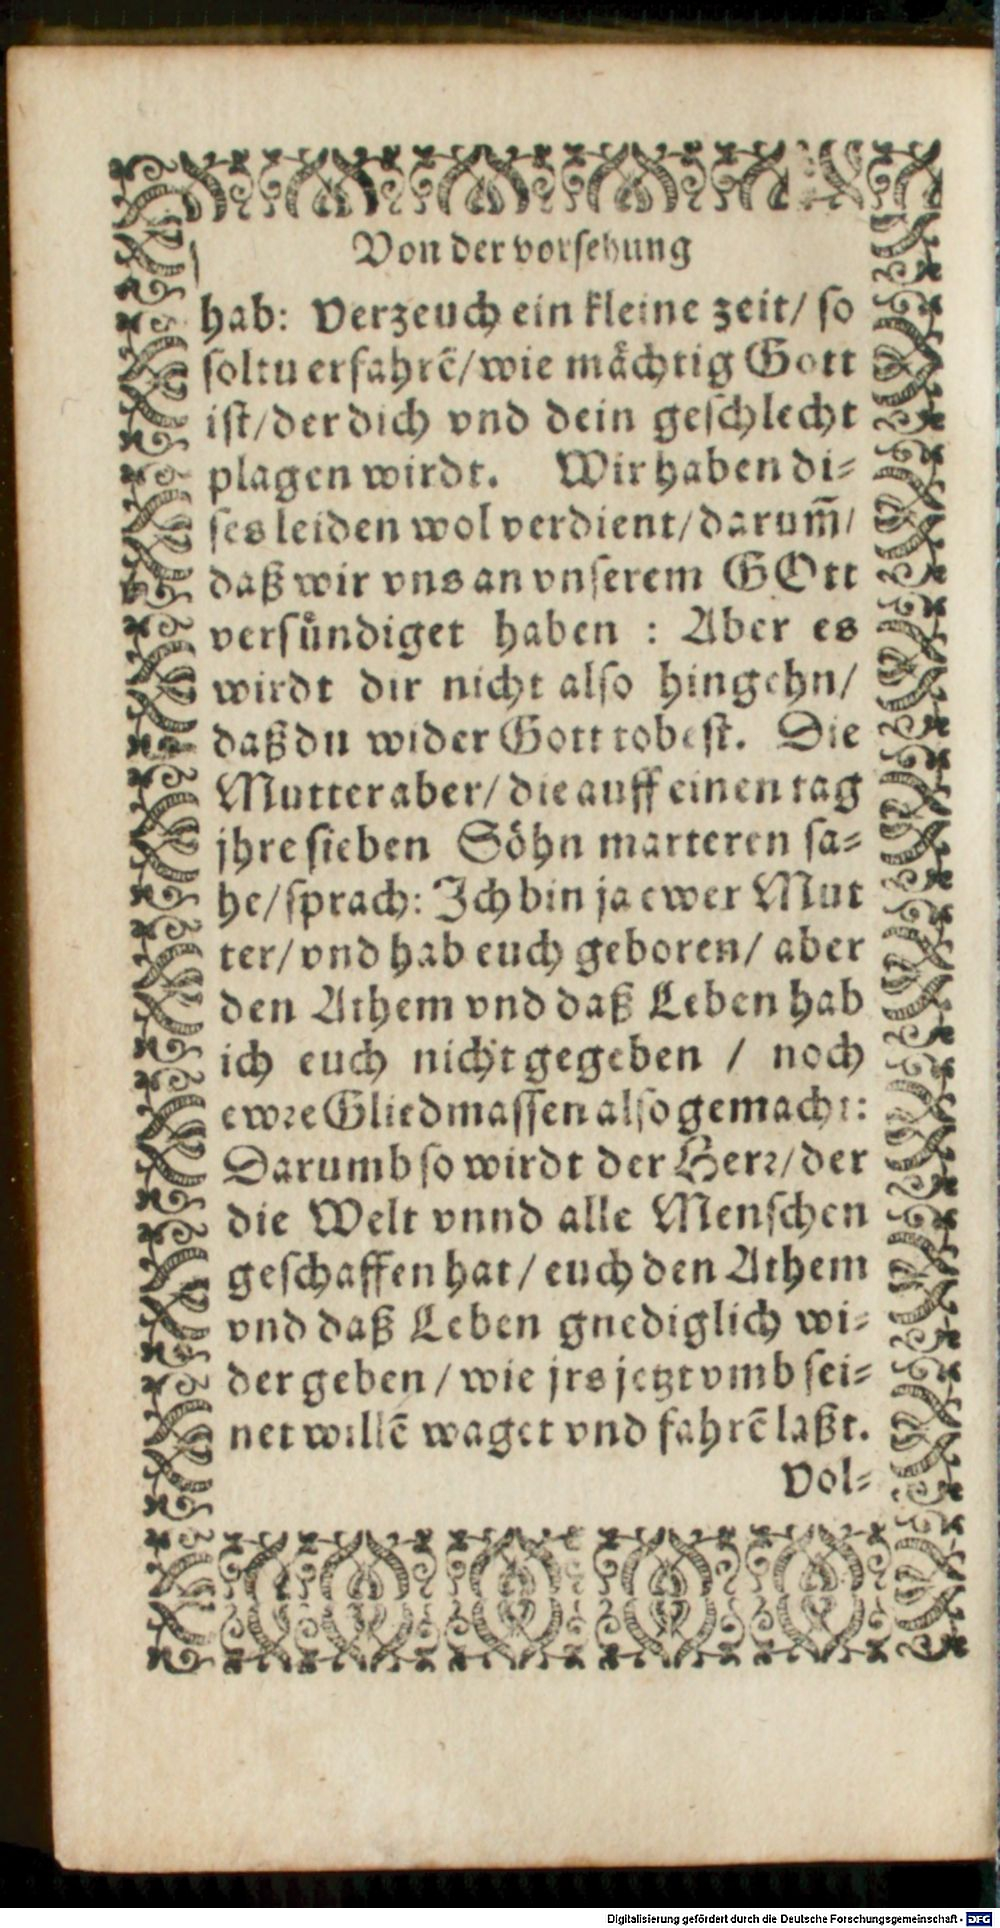 Von der vorsehung
hab: Verzeuch ein kleine zeit/ so
soltu erfahrē/ wie mächtig Gott
ist/ der dich vnd dein geschlecht
plagen wirdt. Wir haben di⸗
ses leiden wol verdient/ darum̄/
daß wir vns an vnserem GOtt
versündiget haben : Aber es
wirdt dir nicht also hingehn/
daß du wider Gott tobest. Die
Mutter aber/ die auff einen tag
jhre sieben Söhn marteren sa⸗
he/ sprach: Ich bin ja ewer Mut
ter/ vnd hab euch geboren/ aber
den Athem vnd daß Leben hab
ich euch nicht gegeben / noch
ewre Gliedmassen also gemacht:
Darumb so wirdt der Herr/ der
die Welt vnnd alle Menschen
geschaffen hat/ euch den Athem
vnd daß Leben gnediglich wi⸗
der geben/ wie jrs jetzt vmb sei⸗
net willē waget vnd fahrē laßt.
Vol⸗
Digitalisierung gefördert durch die Deutsche Forschungsgemeinschaft - DFG